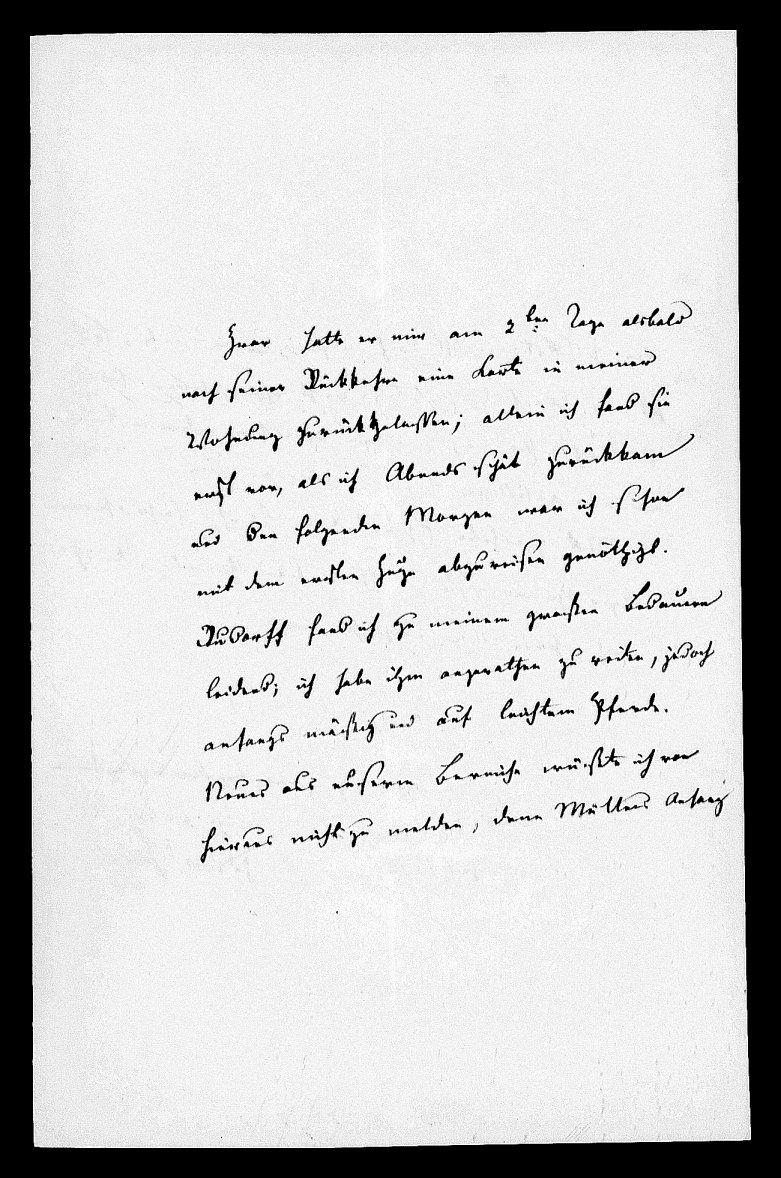 Zwar hatte er mir am 2ten Tage alsbald
nach seiner Rückkehr eine Karte in meiner
Wohnung zurückgelassen; allein ich fand sie
erst vor, als ich Abends spät zurückkam
und den folgenden Morgen war ich schon
mit dem ersten Zuge abzureisen genöthigt.
Rudorff fand ich zu meinem großen Bedauern
leidend; ich habe ihm angerathen zu reiten, jedoch
anfangs mäßig und auf leichtem Pferde.
Neues aus unserem Bereiche wüßte ich von
hieraus nicht zu melden, denn Müllers Anfang